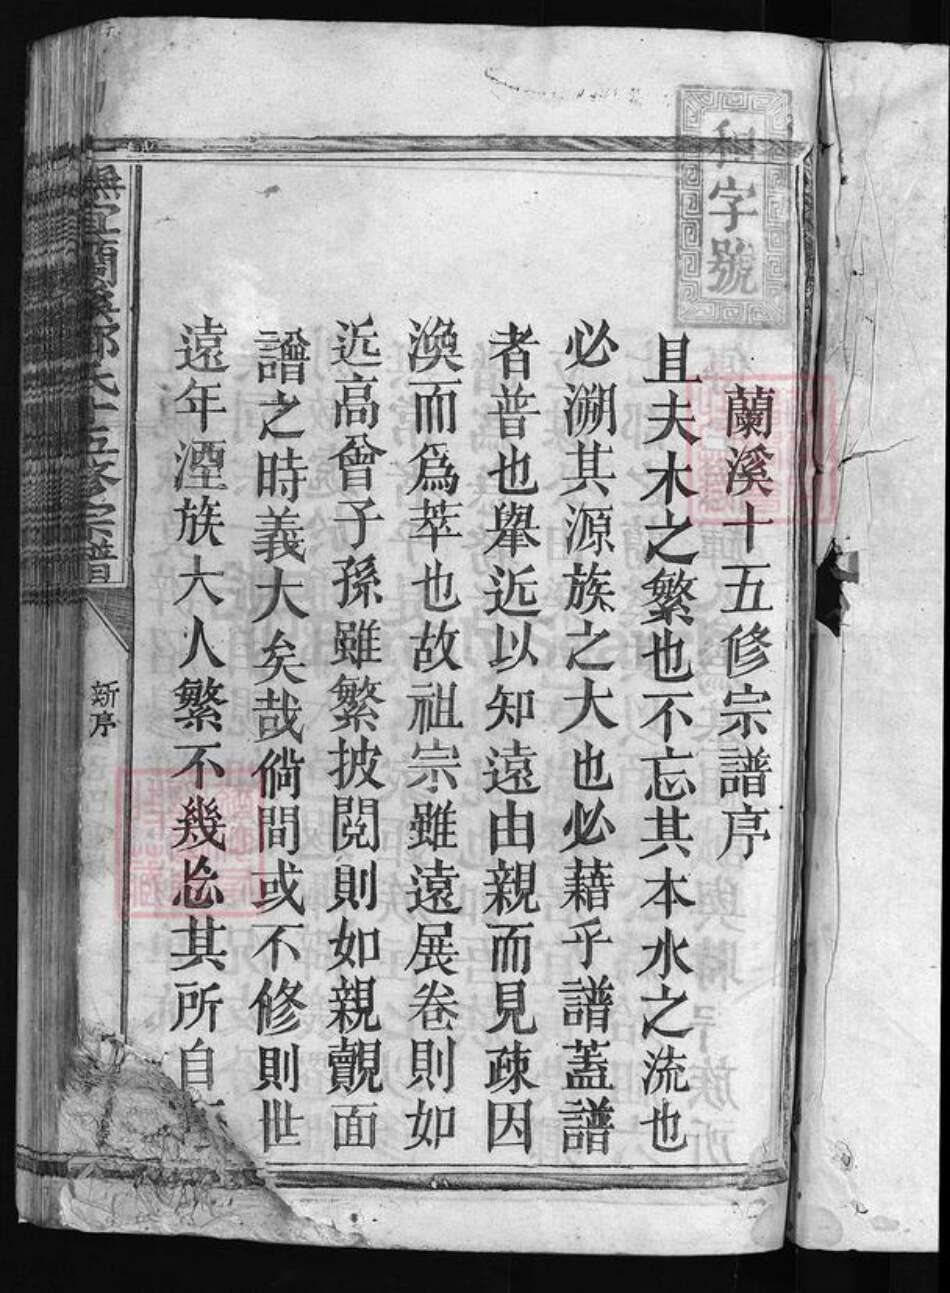 和字號
蘭溪十五修宗譜序
且夫木之繁也不忘其本水之流也
必溯其源族之大也必藉乎譜蓋譜
者普也舉近以知遠由親而見疎因
渙而為萃也故祖宗雖遠展卷則如
近高曾子孫雖繁披閱則如親覿面
譜之時義大矣哉倘問或不修則世
遠年湮族大人繁不幾忘其所自
蘭溪氏十五修宗譜
新序